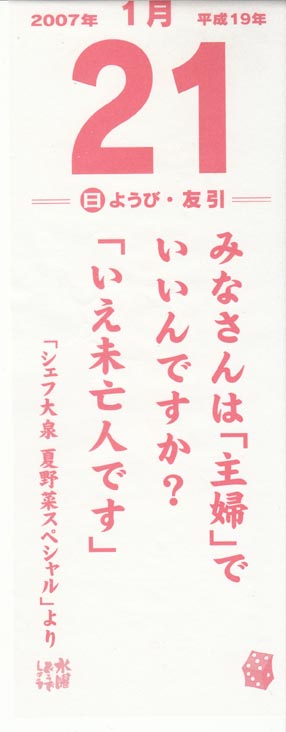 2007年 1月 平成19年
21
日ようび・友引
みなさんは「主婦」で
いいんですか？
「いえ未亡人です」
「シェフ大泉 夏野菜スペシャル」より
水曜
どうで
しょう